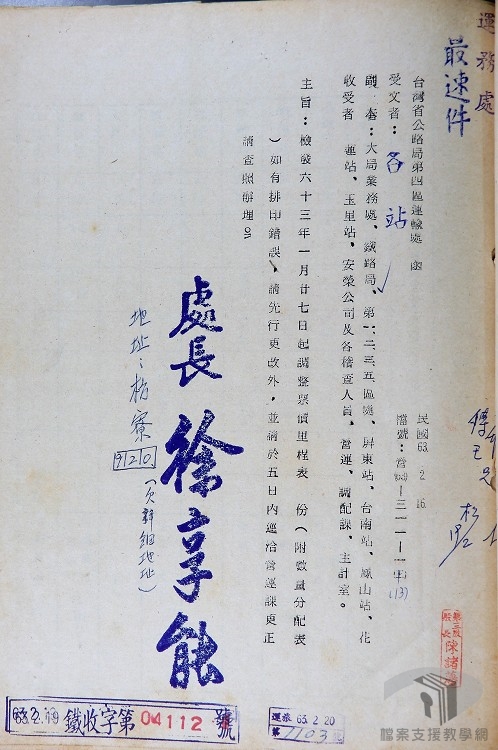 運務處
最速件
台灣省公路局第四區運輸處 函
受文者：各站
副本收受者：大局業務處、鐵路局、第一、二、三、五區處、屏東站、台南站、鳳山站、花蓮站、玉里站、安榮公司及各稽查人員、營運、調配課、主計室。
民國63. 2. 16.
檔號：
主旨：檢發六十三年一月廿七日起調整票價里程表 份（附數量分配表
）如有排印錯誤，請先行更改外，並請於五日內逕洽營運課更正
請查照辦理。
處長 徐享能
地址：枋寮
9120.
（欠詳細地址）
63.2.19 鐵收字第 04112 號
運旅 63.2.20
第 1103 號
檔案支援教學網